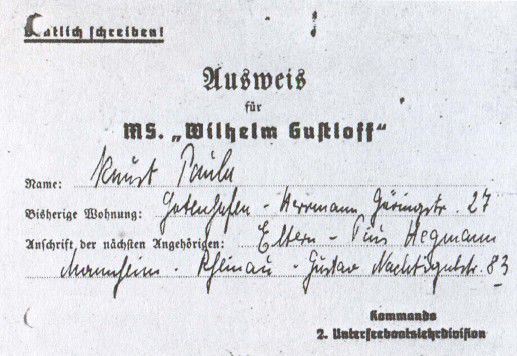 atlich schreiben!
Ausweis
für
MS. „Wilhelm Gustloff"
Name: Knust Paula
Bisherige Wohnung: Gotenhafen - Herrmann Göringstr. 27
Anschrift, der nächsten Angehörigen: Eltern - Pius Hegmann
Mannheim - Rheinau - Gustav Nachtigalstr. 83
Kommando
2. Unterseebootslehrdivision